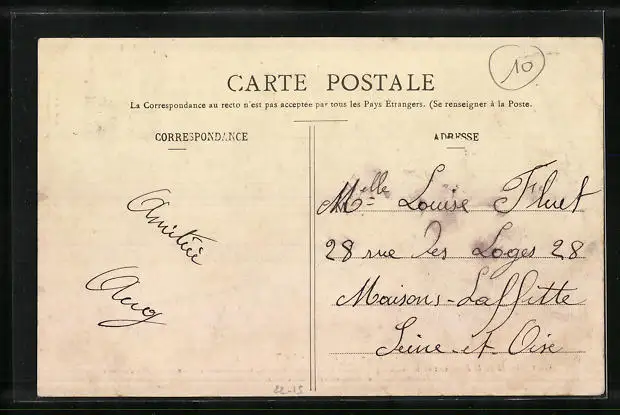 CARTE POSTALE
10
La Correspondance au recto n'est pas acceptée par tous les Pays Étrangers. (Se renseigner à la Poste.
CORRESPONDANCE
Amitié
Aug
ADRESSE
Melle Louise Fluet
28 rue des Loges 28
Maisons-Laffitte
Seine-et-Oise
22-15